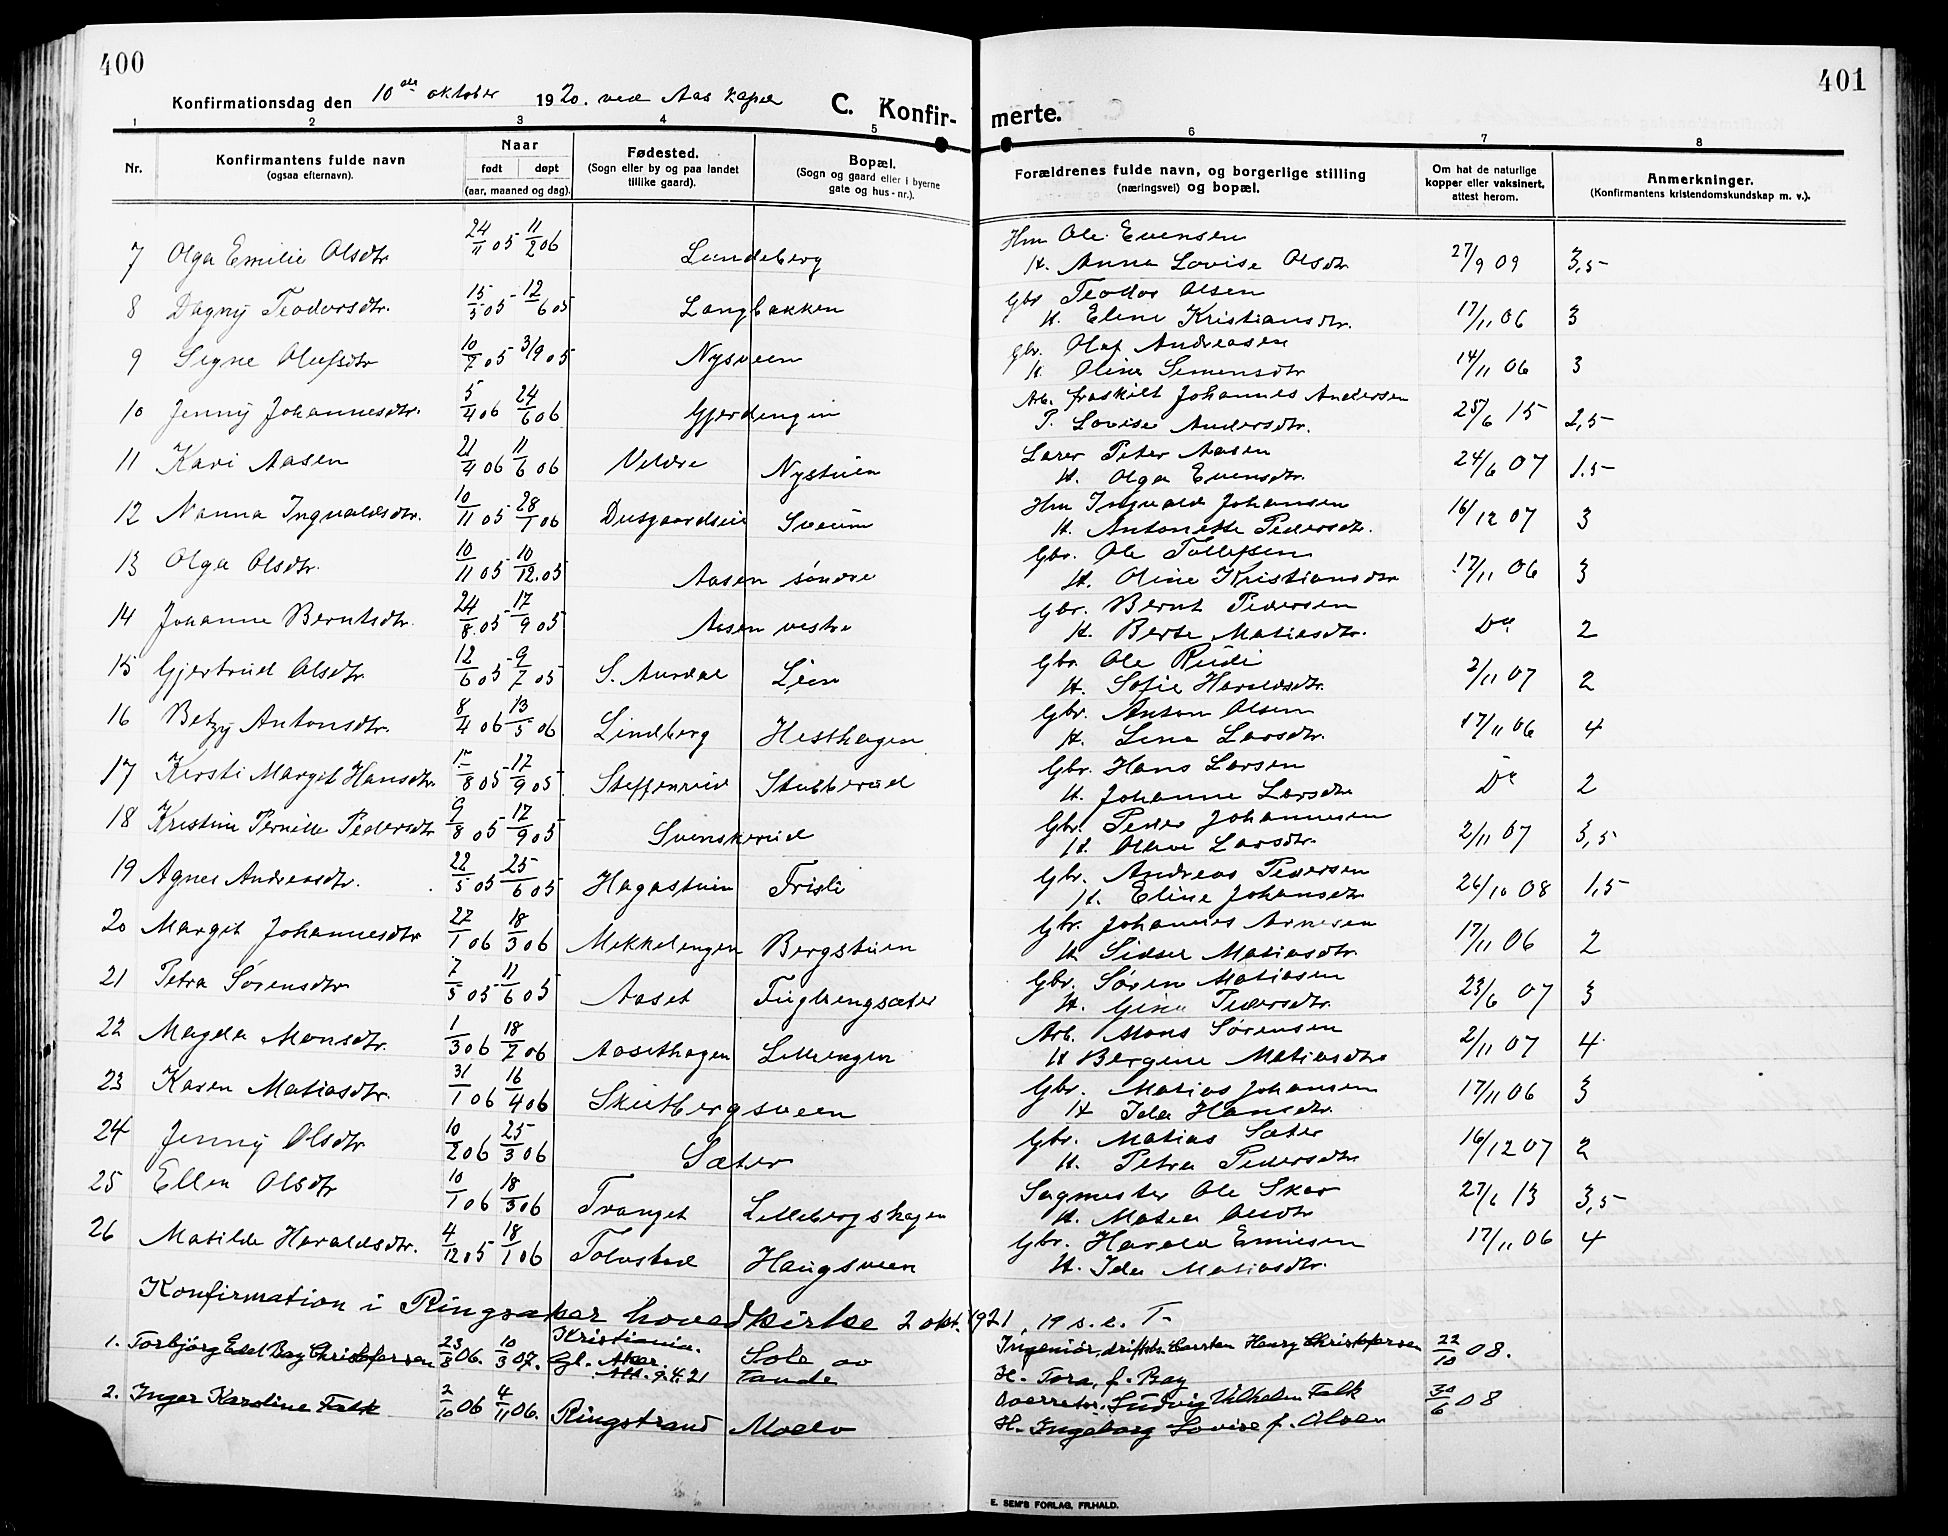 400
401
Konfirmationsdag den 10de oktober 1920. ved Aas kapel
C. Konfirmerte.
1 2 3 4 5 6 7 8
Nr.
Konfirmantens fulde navn
(ogsaa efternavn).
Naar
født døpt
(aar, maaned og dag).
Fødested.
(Sogn eller by og paa landet
tillike gaard).
Bopæl.
(Sogn og gaard eller i byerne
gate og hus-nr.).
Forældrenes fulde navn, og borgerlige stilling
(næringsvei) og bopæl.
Om hat de naturlige
kopper eller vaksinert,
attest herom.
Anmerkninger.
(Konfirmantens kristendomskundskap m. v.).
7 Olga Emilie Olsdtr 24/11 05 - 11/2 06 Lundeberg Hm Ole Evensen 27/9 09 3,5
H. Anna Lovise Olsdtr
8 Dagny Teodorsdtr. 15/5 05 - 12/6 05 Langbakken Gbr Teodor Olsen 17/11 06 3
H. Eline Kristiansdtr.
9 Signe Olufsdtr 10/7 05 3/9 05 Nysveen Gbr. Olaf Andreasen 14/11 06 3
H. Oline Simensdtr
10 Jenny Johannesdtr. 5/4 06 24/6 06 Gjerdengen Arb. fraskilt Johannes Andersen 25/6 15 2,5
P. Lovise Andersdtr.
11 Kari Aasen 21/4 06 11/6 06 Veldre Nystuen Lærer Peter Aasen 24/6 07 1.5
H. Olga Evensdtr.
12 Nanna Ingvaldsdtr. 10/11 05 - 28/1 06 Dusgaardseie Sveum Hm Ingvald Johansen 16/12 07 3
H. Antonette Pedersdtr.
13 Olga Olsdtr. 10/11 05 - 10/12.05 Aasen søndre Gbr. Ole Tollefsen 17/11 06 3
H. Oline Kristiansdtr
14 Johanne Berntsdtr. 24/8.05 - 17/9 05 Aasen vestre Gbr. Bernt Pedersen Do 2
H. Berte Matiasdtr.
15 Gjertrud Olsdtr. 12/6 05 - 9/7 05 S. Aurdal Lien Gbr. Ole Rudi 2/11 07 2
H. Sofie Haraldsdtr.
16 Betzy Antonsdtr. 8/4 06 13/5 06 Lindberg Hesthagen Gbr. Anton Olsen 17/11 06 4
H. Lina Larsdtr.
17 Kersti Margit Hansdtr. /8 05 - 17/9 05 Steffenrud Stubberud Gbr. Hans Larsen Do 2
H. Johanne Larsdtr
18 Kristine Pernille Pedersdtr 9/8 05 - 17/9 05 Svenskerud Gbr. Peder Johannesen 2/11 07 3,5
H. Olave Larsdtr.
19 Agnes Andreasdtr. 22/5 05 25/6 05 Hagastuen Frisli Gbr. Andreas Pedersen 26/10 08 1,5
H. Eline Johansdtr
20 Margit Johannesdtr 27/1 06 18/3 06 Mekkelengen Bergstuen Gbr. Johannes Arnesen 17/11 06 2
H. Sidsel Matiasdtr.
21 Petra Sørensdtr 7/5 05 - 11/6 05 Aaset Fuglsengsæter Gbr. Søren Matiasen 23/6 07 3
H. Gina Pedersdtr.
22 Magda Monsdtr. 1/3 06 18/7 06 Aasethagen Lilleengen Arb. Mons Sørensen 2/11 07 4
H Bergine Matiasdtr
23 Karen Matiasdtr. 31/1 06 16/4 06 Skutbergsveen Gbr. Matias Johansen 17/11 06 3
H Ida Hansdtr.
24 Jenny Olsdtr 10/2 06 25/3 06 Sæter Gbr. Matias Sæter 16/12 07 2
H. Petra Pedersdtr
25 Ellen Olsdtr 10/1 06 18/3 06 Tranget Lillebergshagen Sagmester Ole Skar 27/6 13 3,5
H. Matea Olsdtr
26 Matilde Haraldsdtr. 4/12 05 - 18/1 06 Tolvstad Haugsveen Gbr. Harald Emilsen 17/11 06 4
H. Ida Matiasdtr.
Konfirmation i Ringsaker hovedkirke 2 okt. 1921, 19 s. e. T.
1. Torbjørg Edel Bay Christofersen 23/8 06. 10/3 07. Kristiania. Gl. Aker. Att. 9.4.21 Sole av Tande Ingeniør, driftsb. Carsten Henry Christofersen 22/10 08.
H. Tora, f. Bay
2. Inger Karoline Falk 2/10 06 4/11 06. Ringstrand Moelv Overretss. Ludvig Vilhelm Falk 30/6 08
H. Ingeborg Lovise f. Olsen
E. SEM'S FORLAG, FR.HALD.